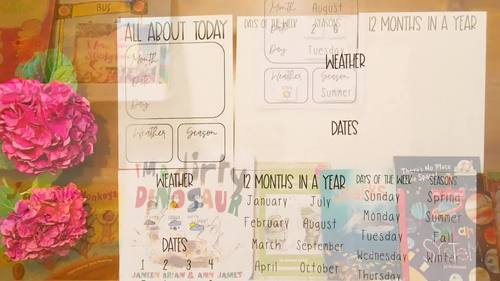 BUS
ALL ABOUT TODAY
DAYS OF THE WEEK
SEASONS
12 MONTHS IN A YEAR
Month August
Date 2 6
Day Tuesday
WEATHER
Weather
Season
Summer
DATES
Month
Date
Day
Weather
Season
I'm a dirty
DINOSAUR
JANEEN BRIAN & ANN JAMES
WEATHER
DATES
1 2 3 4
12 MONTHS IN A YEAR
January July
February August
March September
April October
DAYS OF THE WEEK
Sunday
Monday
Tuesday
Wednesday
Thursday
SEASONS
Spring
Summer
Fall
Winter
There's No Place